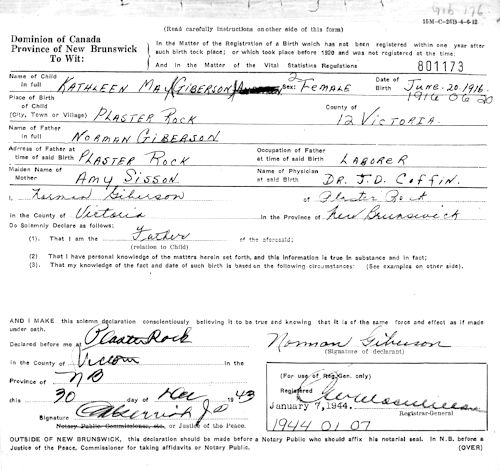 916 176
(Read carefully instructions on other side of this form)
15M-C-26B-4-6-42
Dominion of Canada
Province of New Brunswick
To Wit:
In the Matter of the Registration of a Birth which has not been registered within one year after such birth took place; or which took place before 1920 and was not registered at the time;
And in the Matter of the Vital Statistics Regulations
801173
Name of Child in full KATHLEEN MAY GIBERSON Sex: FEMALE Date of Birth JUNE-20-1916
2
1916 06 20
Place of Birth of Child (City, Town or Village) PLASTER ROCK County of 12 VICTORIA
Name of Father in full NORMAN GIBERSON
Address of Father at time of said Birth PLASTER ROCK Occupation of Father at time of said Birth LABORER
Maiden Name of Mother AMY SISSON Name of Physician at said Birth DR. J.D. COFFIN.
I, Norman Giberson of Plaster Rock
in the County of Victoria in the Province of New Brunswick
Do Solemnly Declare as follows:
(1). That I am the Father of the aforesaid;
(relation to Child)
(2) That I have personal knowledge of the matters herein set forth, and this information is true in substance and in fact;
(3). That my knowledge of the fact and date of such birth is based on the following circumstances: (See examples on other side).
AND I MAKE this solemn declaration conscientiously believing it to be true and knowing that it is of the same force and effect as if made under oath.
Declared before me at Plaster Rock Norman Giberson
(Signature of declarant)
in the County of in the
Province of NB
this 30 day of Dec 1943
Signature
Notary Public Commissioner, etc. or Justice of the Peace.
(For use of Reg. Gen. only)
Registered
January 7, 1944. Registrar-General
1944 01 07
OUTSIDE OF NEW BRUNSWICK, this declaration should be made before a Notary Public who should affix his notarial seal. In N.B. before a Justice of the Peace, Commissioner for taking affidavits or Notary Public.
(OVER)